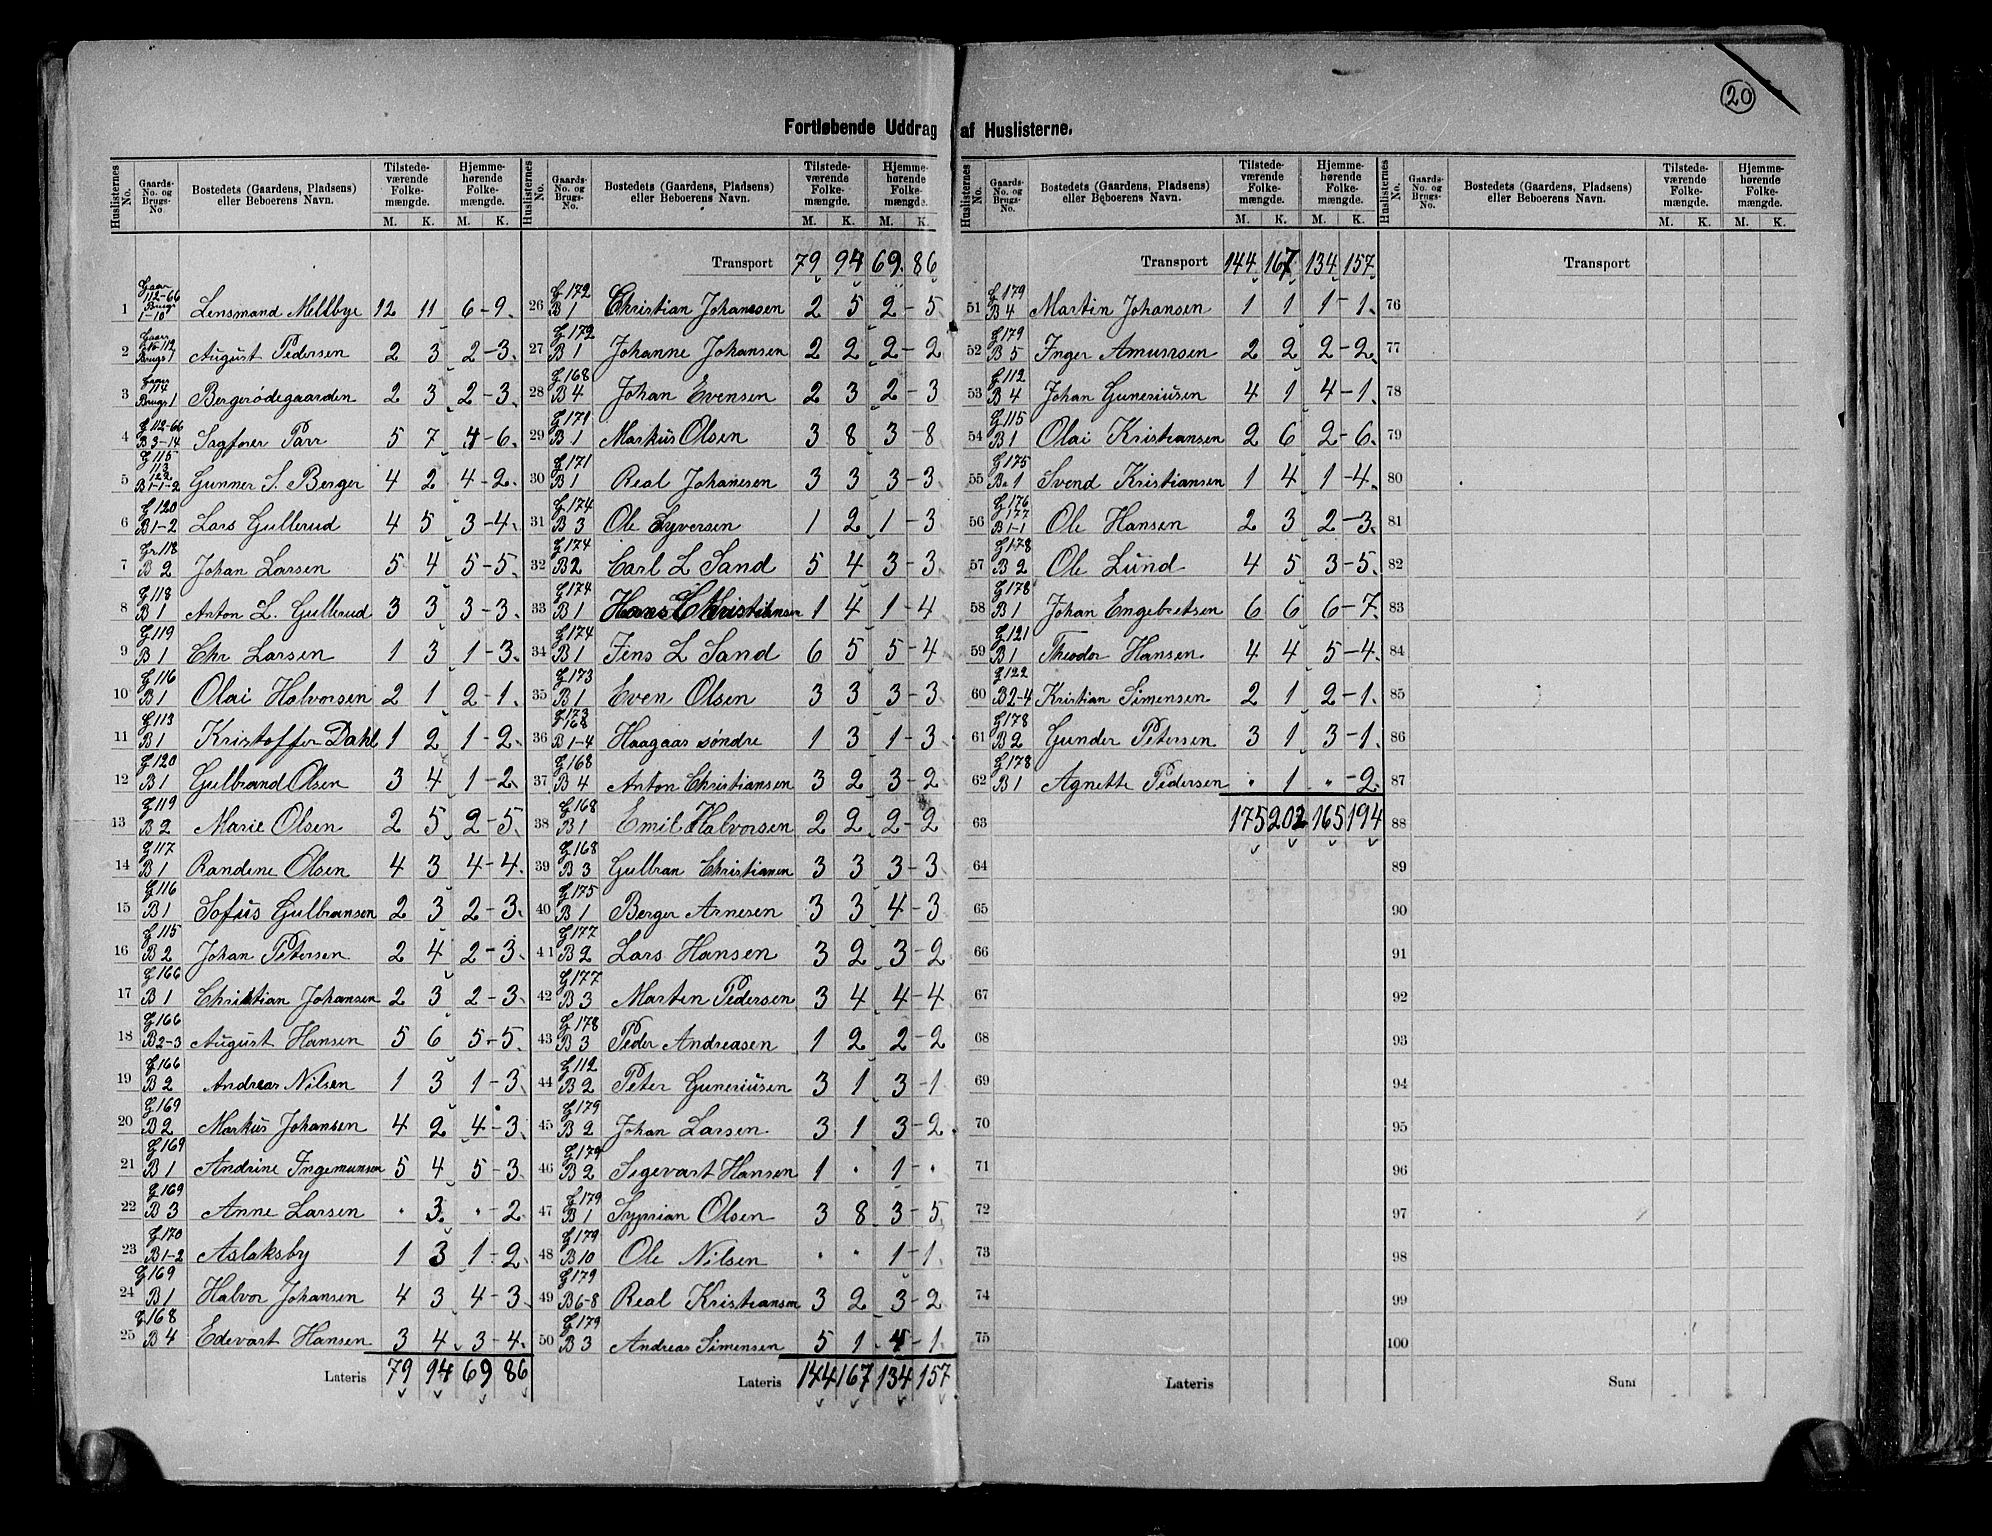 20
Fortløbende Uddrag af Huslisterne.
Huslisternes No. Gaards-No. og Brugs-No. Bostedets (Gaardens, Pladsens) eller Beboerens Navn. Tilstedeværende Folkemængde. M. K. Hjemmehørende Folkemængde. M. K.
1 Gaar 112-66 Brugs 1-10 Lensmand Mellbye 12 11 6-9.
2 Brugs 1 August Pedersen 2 3 2-3.
3 Gaar 114 Brugs 1 Bergerødegaarden 2 3 2-3.
4 G 112-66 B 3-14 Sagfører Parr 5 7 4-6.
5 G 115 113 122 B 1-1-2 Gunner S. Berger 4 2 4-2.
6 G 120 B 1-2 Lars Gullerud 4 5 3-4.
7 Gr 118 B 2 Johan Larsen 5 4 5-5.
8 G 118 B 1 Anton L. Gullerud 3 3 3-3.
9 G 119 B 1 Chr Larsen 1 3 1-3.
10 G 116 B 1 Olai Halvorsen 2 1 2-1.
11 G 113 B 1 Kristoffer Dahl 1 2 1-2.
12 G 120 B 1 Gulbrand Olsen 3 4 1-2.
13 G 119 B 2 Marie Olsen 2 5 2-5.
14 G 117 B 1 Randine Olsen 4 3 4-4.
15 G 116 B 1 Sofus Gulbransen 2 3 2-3.
16 G 115 B 2 Johan Petersen 2 4 2-3.
17 G 166 B 1 Christian Johansen 2 3 2-3.
18 G 166 B 2-3 August Hansen 5 6 5-5.
19 G 166 B 2 Andreas Nilsen 1 3 1-3.
20 G 169 B 2 Markus Johansen 4 2 4-3.
21 G 169 B 1 Andrine Ingemunsen 5 4 5-3.
22 G 169 B 3 Anne Larsen " 3 " -2.
23 G 170 B 1-2 Aslaksby 1 3 1-2.
24 G 169 B 1 Halvor Johansen 4 3 4-3.
25 G 168 B 4 Edevart Hansen 3 4 3-4.
Lateris 79 94 69 86
Huslisternes No. Gaards-No. og Brugs-No. Bostedets (Gaardens, Pladsens) eller Beboerens Navn. Tilstedeværende Folkemængde. M. K. Hjemmehørende Folkemængde. M. K.
Transport 79 94 69. 86
26 G 172 B 1 Christian Johannesen 2 5 2-5
27 G 172 B 1 Johanne Johansen 2 2 2-2
28 G 168 B 4 Johan Evensen 2 3 2-3
29 G 171 B 1 Markus Olsen 3 8 3-8
30 G 171 B 1 Real Johanesen 3 3 3-3
31 G 174 B 3 Ole Syversen 1 2 1-3
32 G 174 B 2 Carl L Sand 5 4 3-3
33 G 174 B 1 Hans Christiansen 1 4 1-4
34 G 174 B 1 Jens L Sand 6 5 5-4
35 G 173 B 1 Even Olsen 3 3 3-3
36 G 173 168 B 1-4 Haagaar søndre 1 3 1-3
37 G 168 B 4 Anton Christiansen 3 2 3-2
38 G 168 B 1 Emil Halvorsen 2 2 2-2
39 G 168 B 3 Gulbran Christiansen 3 3 3-3
40 G 175 B 1 Berger Arnesen 3 3 4-3
41 G 177 B 2 Lars Hansen 3 2 3-2
42 G 177 B 3 Martin Pedersen 3 4 4-4
43 G 178 B 3 Peder Andreasen 1 2 2-2
44 G 112 B 2 Peter Guneriusen 3 1 3-1
45 G 179 B 2 Johan Larsen 3 1 3-2
46 G 179 B 2 Sigevart Hansen 1 " 1-"
47 G 179 B 1 Syprian Olsen 3 8 3-5
48 G 179 B 10 Ole Nilsen " " 1-1
49 G 179 B 6-8 Real Kristiansen 3 2 3-2
50 G 179 B 3 Andreas Simensen 5 1 4-1
Lateris 144 167 134 157
Huslisternes No. Gaards-No. og Brugs-No. Bostedets (Gaardens, Pladsens) eller Beboerens Navn. Tilstedeværende Folkemængde. M. K. Hjemmehørende Folkemængde. M. K.
Transport 144 167 134 157
51 G 179 B 4 Martin Johansen 1 1 1-1
52 G 179 B 5 Inger Amunsen 2 2 2-2.
53 G 112 B 4 Johan Guneriusen 4 1 4-1.
54 G 115 B 1 Olai Kristiansen 2 6 2-6.
55 G 175 B. 1 Svend Kristiansen 1 4 1-4.
56 G 176 177 B 1-1 Ole Hansen 2 3 2-3.
57 G 178 B 2 Ole Lund 4 5 3-5.
58 G 178 B 1 Johan Engebretsen 6 6 6-7.
59 G 121 B 1 Theodor Hansen 4 4 5-4.
60 G 122 B 2-4 Kristian Simensen 2 1 2-1.
61 G 178 B 2 Gunder Petersen 3 1 3-1.
62 G 178 B 1 Agnette Pedersen " 1 " -2
63 175 202 165 194
64
65
66
67
68
69
70
71
72
73
74
75
Lateris
Huslisternes No. Gaards-No. og Brugs-No. Bostedets (Gaardens, Pladsens) eller Beboerens Navn. Tilstedeværende Folkemængde. M. K. Hjemmehørende Folkemængde. M. K.
Transport
76
77
78
79
80
81
82
83
84
85
86
87
88
89
90
91
92
93
94
95
96
97
98
99
100
Sum